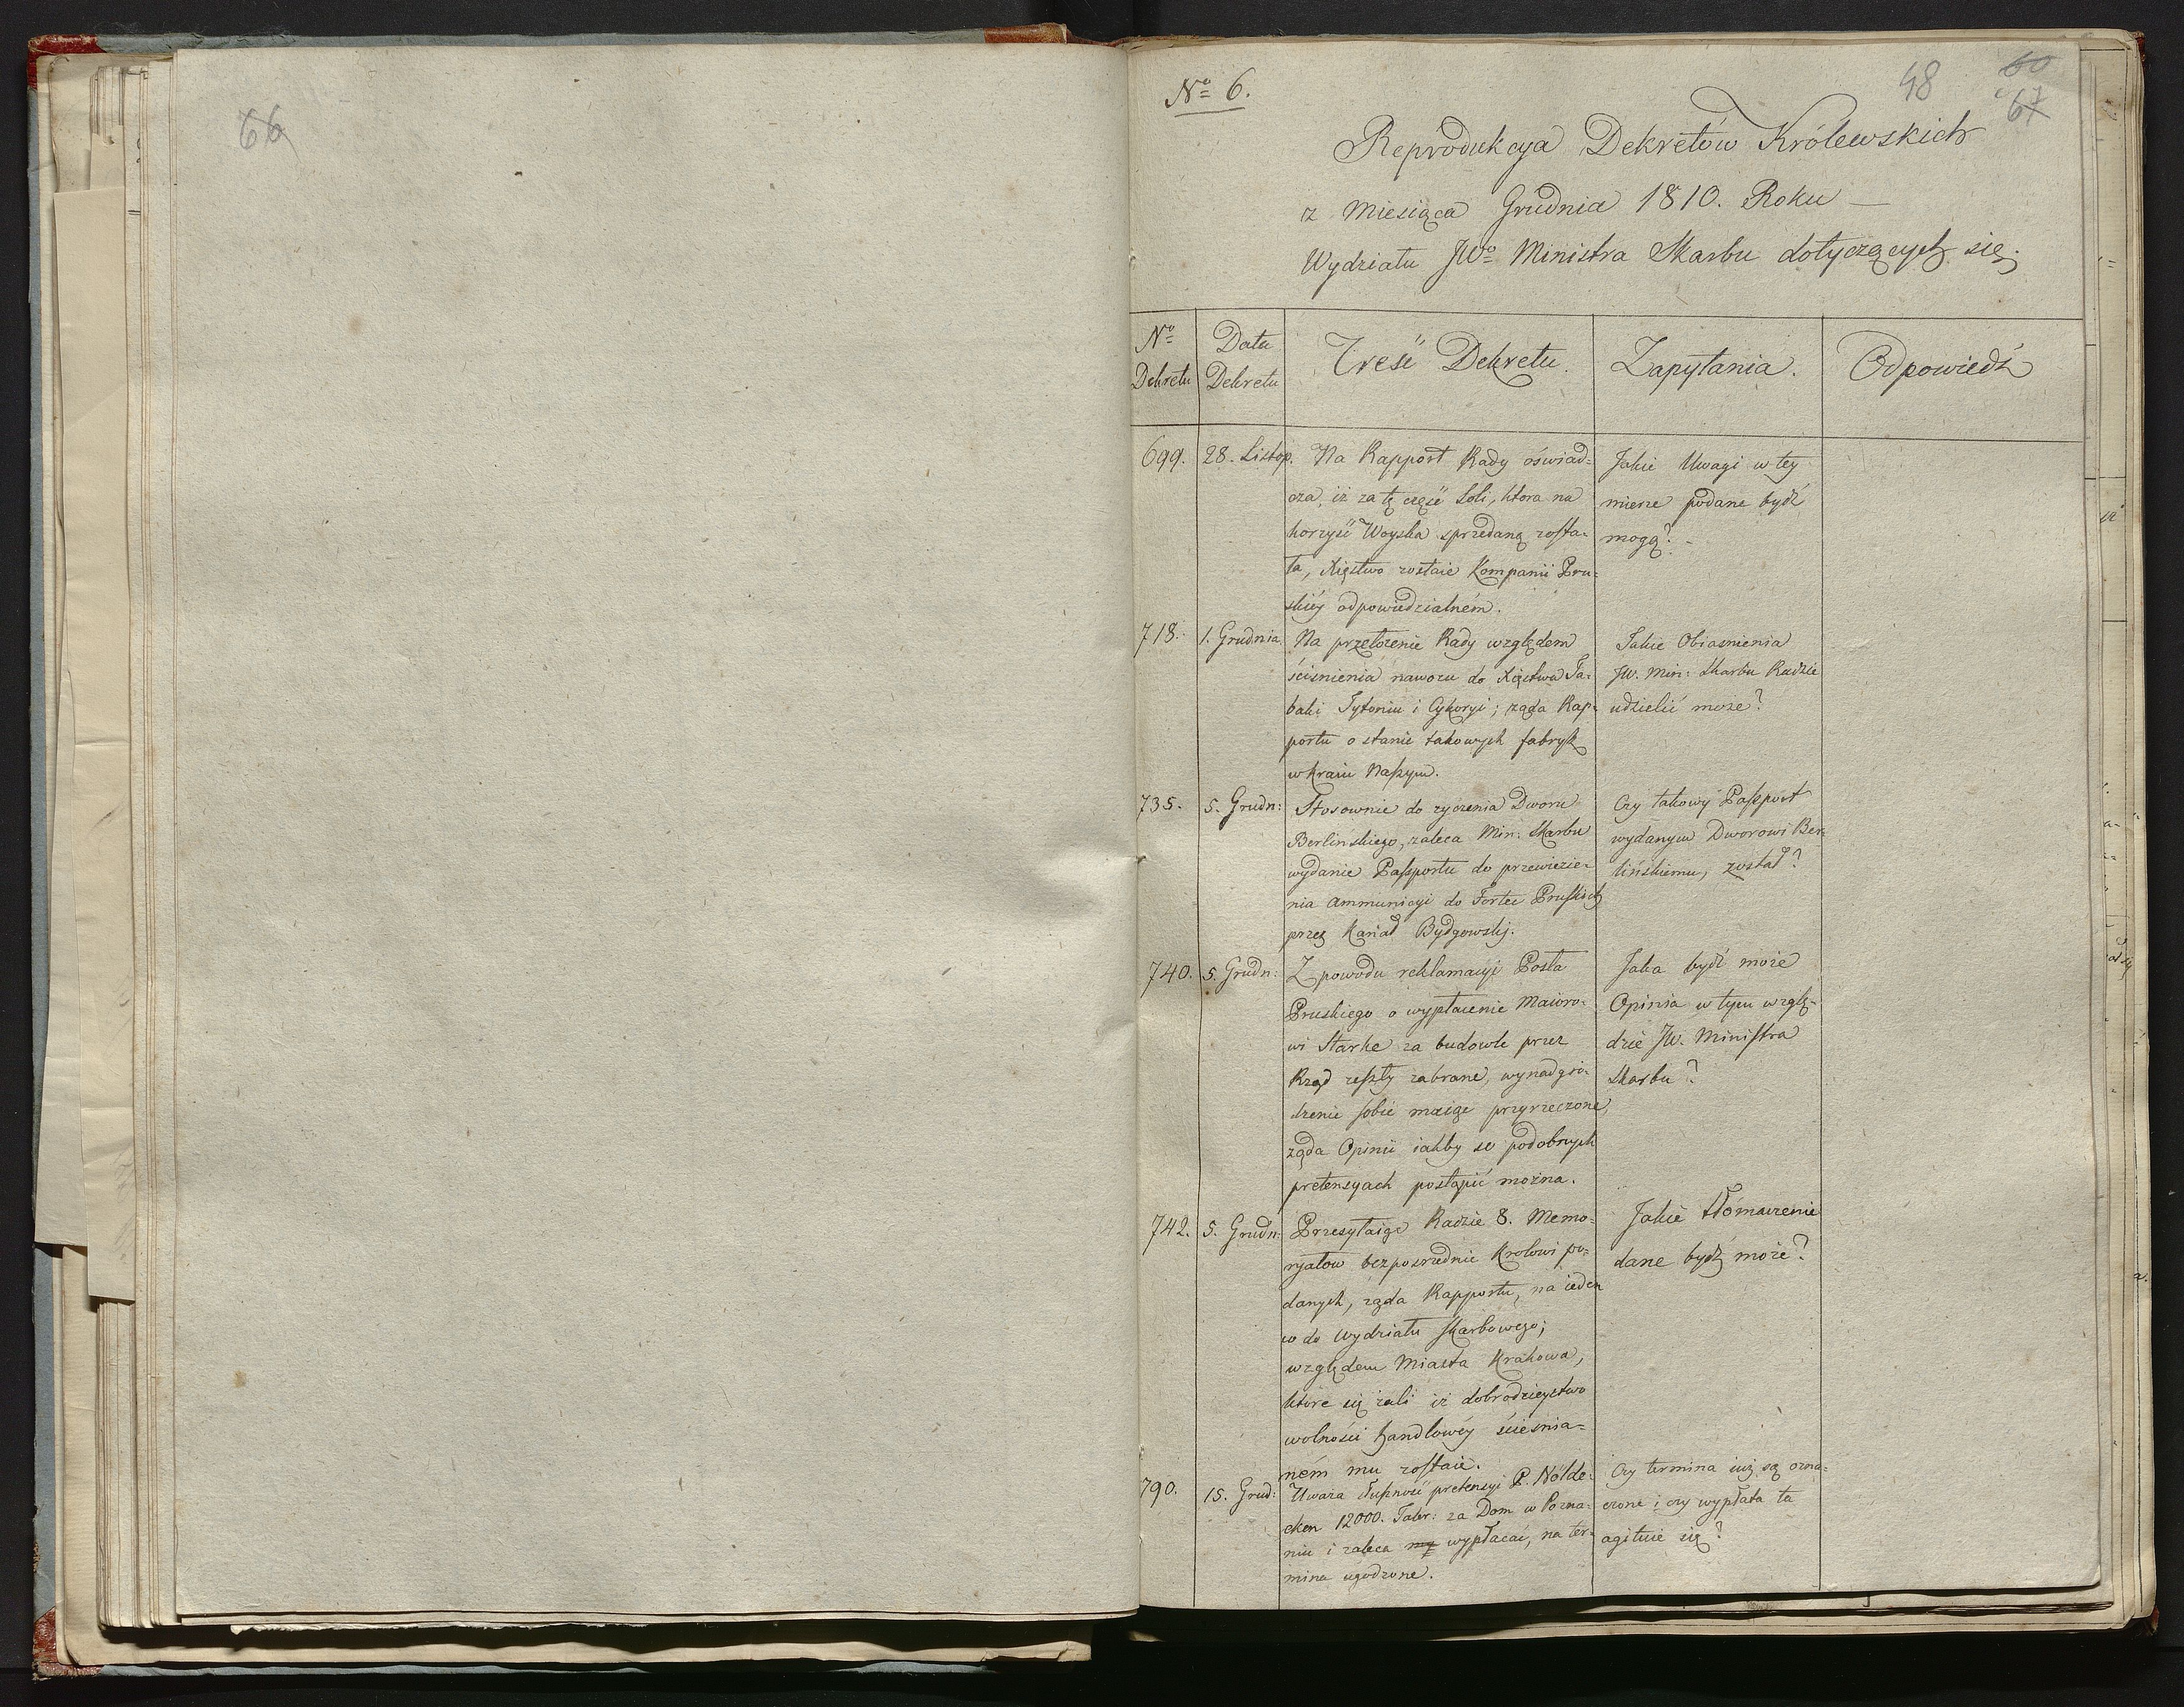 66
Nº 6.
48
60
67
Reprodukcya Dekretów Królewskich
z Miesiąca Grudnia 1810. Roku —
Wydziału JWº Ministra Skarbu dotyczących się.
Nº Dekretu
Data Dekretu
Treść Dekretu.
Zapytania.
Odpowiedź
699.
28. Listop.
Na Rapport Rady oświad-
cza, iż za tę część Soli, ktora na
korzyść Woyska sprzedaną zosta-
ła, Xięstwo zostaie Kompanii Pru-
skiéy odpowiedzialném.
Jakie Uwagi w tey
mierze podane bydź
mogą? -
718.
1. Grudnia
Na przełożenie Rady względem
ściśnienia nawozu do Xięstwa Ta-
baki Tytoniu i Cykoryi; żąda Rap-
portu o stanie takowych fabryk
w Kraiu Naszym.
Jakie Obiasnienia
JW. Min: Skarbu Radzie
udzielić może?
735.
5. Grudn:
Stosownie do życzenia Dworu
Berlinskiego, zaleca Min: Skarbu
wydanie Paszportu do przewiezie-
nia Ammunicyi do Fortec Pruskich
przez Kanał Bydgowski.
Czy takowy Paszport
wydanym Dworowi Ber-
lińskiemu, został?
740.
5. Grudn:
Z powodu reklamacyi Posła
Pruskiego o wypłacenie Maioro-
wi Starke za budowle przez
Rząd zeszły zabrane, wynadgro-
dzenie sobie maiąc przyrzeczone,
żąda Opinii iakby w podobnych
pretensyach postąpić można.
Jaka bydź może
Opinia w tym wzglę-
dzie JW. Ministra
Skarbu?
742.
5. Grudn:
Przesyłaiąc Radzie 8. Memo-
ryałow bezposrednie Krolowi po-
danych, żąda Rapportu, na ieden
co do Wydziału Skarbowego;
względem Miasta Krakowa,
które się żali iż dobrodzieystwo
wolności handlowéy ścieśnia-
ném mu zostaie.
Jakie tłómaczenie
dane bydź może?
790.
15. Grud:
Uważa słuszność pretensyi P. Nolde-
cken 12000. Talar: za Dom w Pozna-
niu i zaleca wypłacać, na ter-
mina ugodzone.
Czy termina już są ozna-
czone i czy wypłata ta
agituie się?